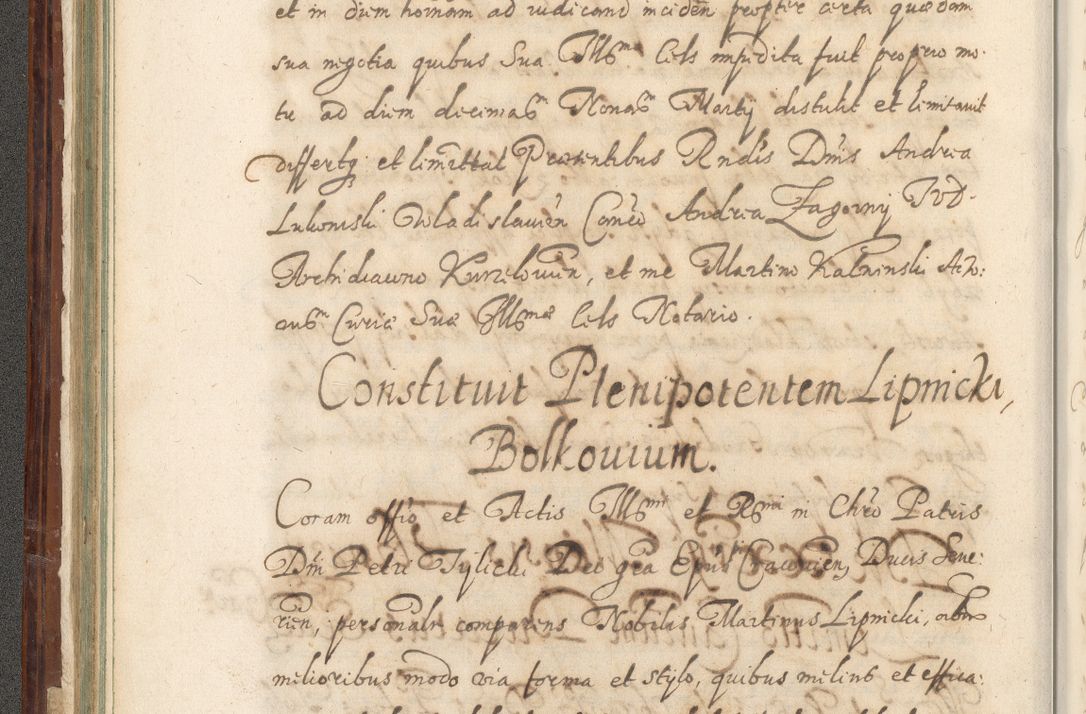 et in diem hornam ad iudicand inciden̄ propter certa quædam
sua negotia quibus Sua Illma Cels impedita fuit proprio mo-
tu ad diem decimam Nonam Martij distulit et limitavit
differtq et limittat Præsentibus Rndis Dnis Andrea
Lukomski Wladislauien Canco Andrea Zagorny IVD.
Archidiacono Kurzelouien, et me Martino Kalninski Acto:
rum Curiæ Suæ Illmæ Cels Notario.
Constituit Plenipotentem Lipnicki,
Bolkouium.
Coram offio et Actis Illmi et Rmi in Chro Patris
Dni Petri Tylicki Dei gra Epi Cracouien, Ducis Seue:
rien, personalr comparens Nobilis Martinus Lipnicki, oibus
melioribus modo via forma et stylo, quibus melius et effica: